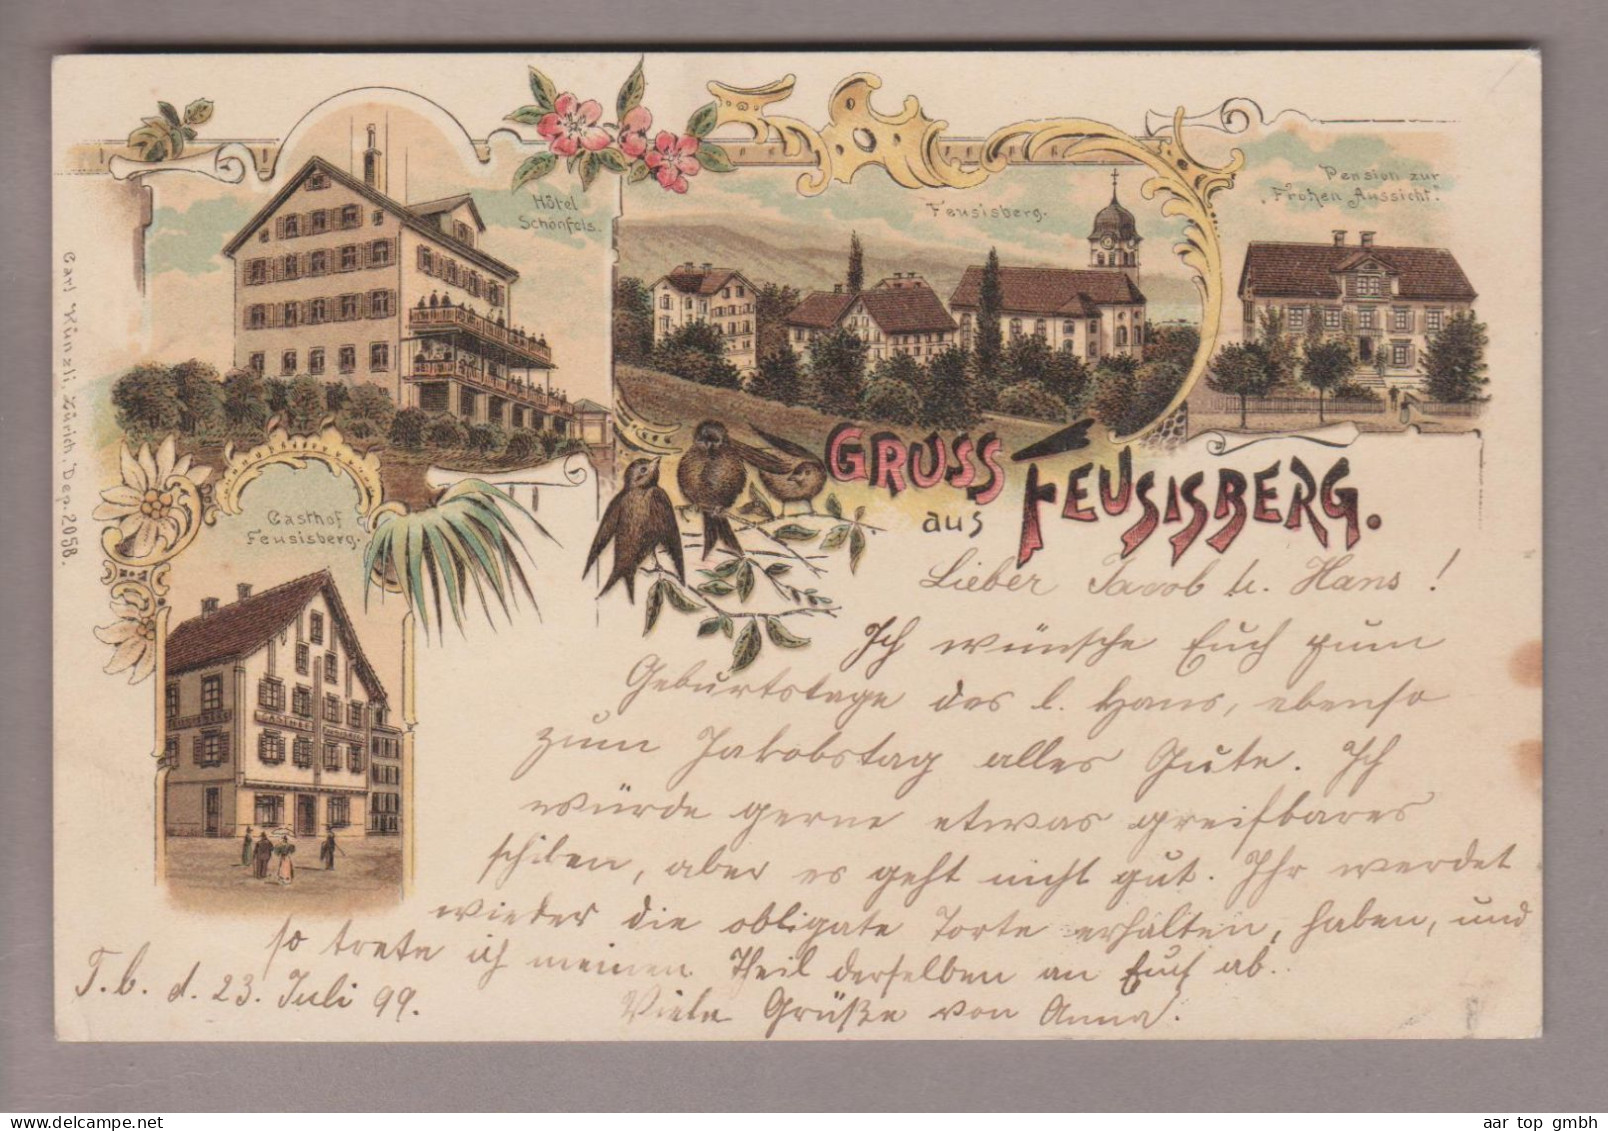 Hôtel
Schönfels.
Feusisberg.
Pension zur
„Frohen Aussicht".
Carl Künzli, Zürich, Dep. 2058.
Gasthof
Feusisberg.
GRUSS
aus FEUSISBERG.
Lieber Jacob u. Hans!
Ich wünsche Euch zum
Geburtstage des l. Hans, ebenso
zum Jakobstag alles Gute. Ich
würde gerne etwas greifbares
schiken, aber es geht nicht gut. Ihr werdet
wieder die obligate Torte erhalten, haben, und
so trete ich meinen Theil derselben an Euch ab.
T.b. d. 23. Juli 99.
Viele Grüße von Anna.
aar top gmbh